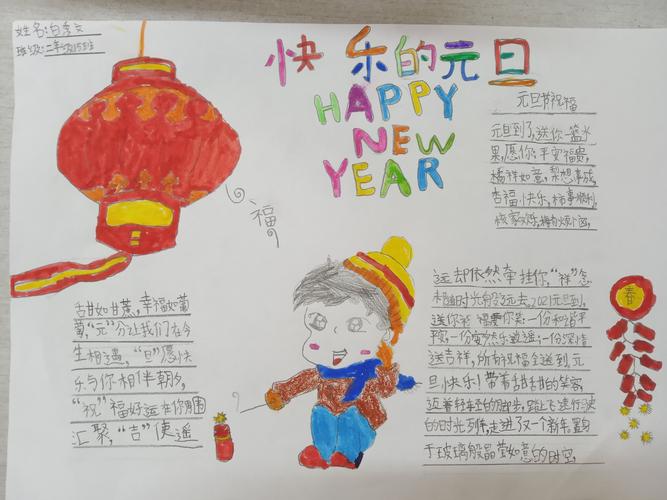 姓名:白
班级:二年级15班
快乐的元旦
HAPPY
NEW
YEAR
元旦节祝福
元旦到了,送你一篮水
果,愿你:平安福贵,
橘祥如意,梨想事成,
杏福快乐,柿事顺利
福
春
舌甘如甘蔗,幸福如葡
萄,“元”分让我们在今
生相遇,“旦”愿快
乐与你相伴朝夕,
“祝”福好运在你周围
汇聚,“吉”使遥
远却依然牵挂你,“祥”怎
相随时光般远去,2021元旦到,
送你祝福要你笑:一份和谐平
安,一份安然乐逍遥;一份深情
送吉祥,所有祝福全送到元
旦快乐!带着甜甜的笑容
迈着轻轻的脚步,踏上飞速行驶
的时光列车,走进了又一个新年,置身
于玻璃般晶莹如意的时空